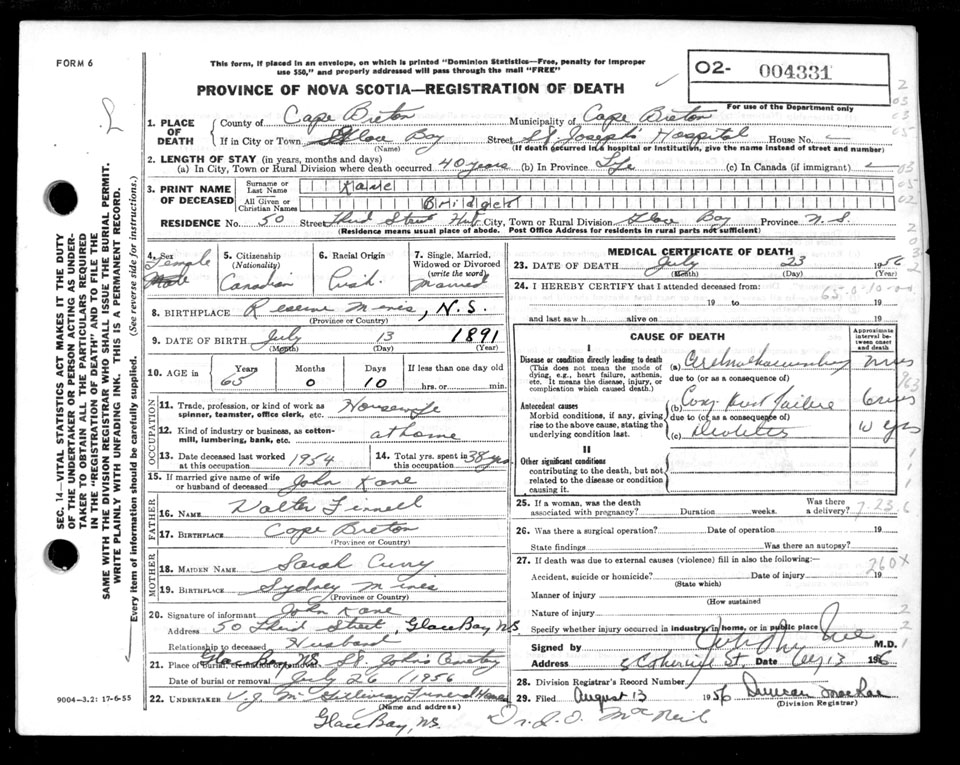 FORM 6
This form, if placed in an envelope, on which is printed "Dominion Statistics—Free, penalty for improper
use $50," and properly addressed will pass through the mail "FREE"
O2- 004331
For use of the Department only
PROVINCE OF NOVA SCOTIA—REGISTRATION OF DEATH
SEC. 14—VITAL STATISTICS ACT MAKES IT THE DUTY
OF THE UNDERTAKER OR PERSON ACTING AS UNDER-
TAKER TO OBTAIN ALL THE PARTICULARS REQUIRED
IN THE "REGISTRATION OF DEATH" AND TO FILE THE
SAME WITH THE DIVISION REGISTRAR WHO SHALL ISSUE THE BURIAL PERMIT.
WRITE PLAINLY WITH UNFADING INK. THIS IS A PERMANENT RECORD.
Every item of information should be carefully supplied. (See reverse side for instructions.)
1. PLACE OF DEATH
County of Cape Breton Municipality of Cape Breton
If in City or Town Glace Bay Street St. Joseph's Hospital House No. —
(Name) (If death occurred in a hospital or institution, give the name instead of street and number)
2. LENGTH OF STAY (in years, months and days)
(a) In City, Town or Rural Division where death occurred 40 years (b) In Province Life (c) In Canada (if immigrant) —
3. PRINT NAME OF DECEASED
Surname or Last Name Kane
All Given or Christian Names Bridget
RESIDENCE No. 50 Street Third Street City, Town or Rural Division Glace Bay Province N.S.
(Residence means usual place of abode. Post Office Address for residents in rural parts not sufficient)
4. Sex Female Male
5. Citizenship (Nationality) Canadian
6. Racial Origin Irish.
7. Single, Married, Widowed or Divorced (write the word) Married
8. BIRTHPLACE Reserve Mines, N.S.
(Province or Country)
9. DATE OF BIRTH July 13 1891
(Month) (Day) (Year)
10. AGE in Years 65 Months 0 Days 10 If less than one day old hrs. or min.
OCCUPATION
11. Trade, profession or kind of work as spinner, teamster, office clerk, etc. Housewife
12. Kind of industry or business, as cotton-mill, lumbering, bank, etc. at home
13. Date deceased last worked at this occupation 1954
14. Total yrs. spent in this occupation 38 yrs
15. If married give name of wife or husband of deceased John Kane
FATHER
16. NAME Walter Finnell
17. BIRTHPLACE Cape Breton
(Province or Country)
MOTHER
18. MAIDEN NAME Sarah Curry
19. BIRTHPLACE Sydney Mines
(Province or Country)
20. Signature of informant John Kane
Address 50 Third Street, Glace Bay, NS.
Relationship to deceased Husband
21. Place of Burial, cremation or removal Glace Bay, NS. St. John's Cemetery
Date of burial or removal July 26 1956
22. UNDERTAKER V.J. McGillivray Funeral Home
(Name and address)
Glace Bay, NS.
9004—3.2: 17-6-55
MEDICAL CERTIFICATE OF DEATH
23. DATE OF DEATH July 23 1956
(Month) (Day) (Year)
24. I HEREBY CERTIFY that I attended deceased from:
19 to 19
and last saw h alive on 19
CAUSE OF DEATH
Approximate interval between onset and death
I
Disease or condition directly leading to death
(This does not mean the mode of dying, e.g., heart failure, asthenia, etc. It means the disease, injury, or complication which caused death.)
(a) Cerebral haemorrhage
due to (or as a consequence of)
Antecedent causes
Morbid conditions, if any, giving rise to the above cause, stating the underlying condition last.
(b) Cong Heart Failure
due to (or as a consequence of)
(c) Diabetes 10 yrs
II
Other significant conditions
contributing to the death, but not related to the disease or condition causing it.
25. If a woman, was the death associated with pregnancy? Duration weeks. Was there a delivery?
26. Was there a surgical operation? Date of operation 19
State findings Was there an autopsy?
27. If death was due to external causes (violence) fill in also the following:—
Accident, suicide or homicide? Date of injury 19
(State which)
Manner of injury
(How sustained
Nature of injury
Specify whether injury occurred in industry, in home, or in public place
Signed by M.D.
Address S Catherine St. Date Aug 13 1956
28. Division Registrar's Record Number
29. Filed August 13 1956 Duncan MacRae
(Division Registrar)
Dr. J. O. McNeil